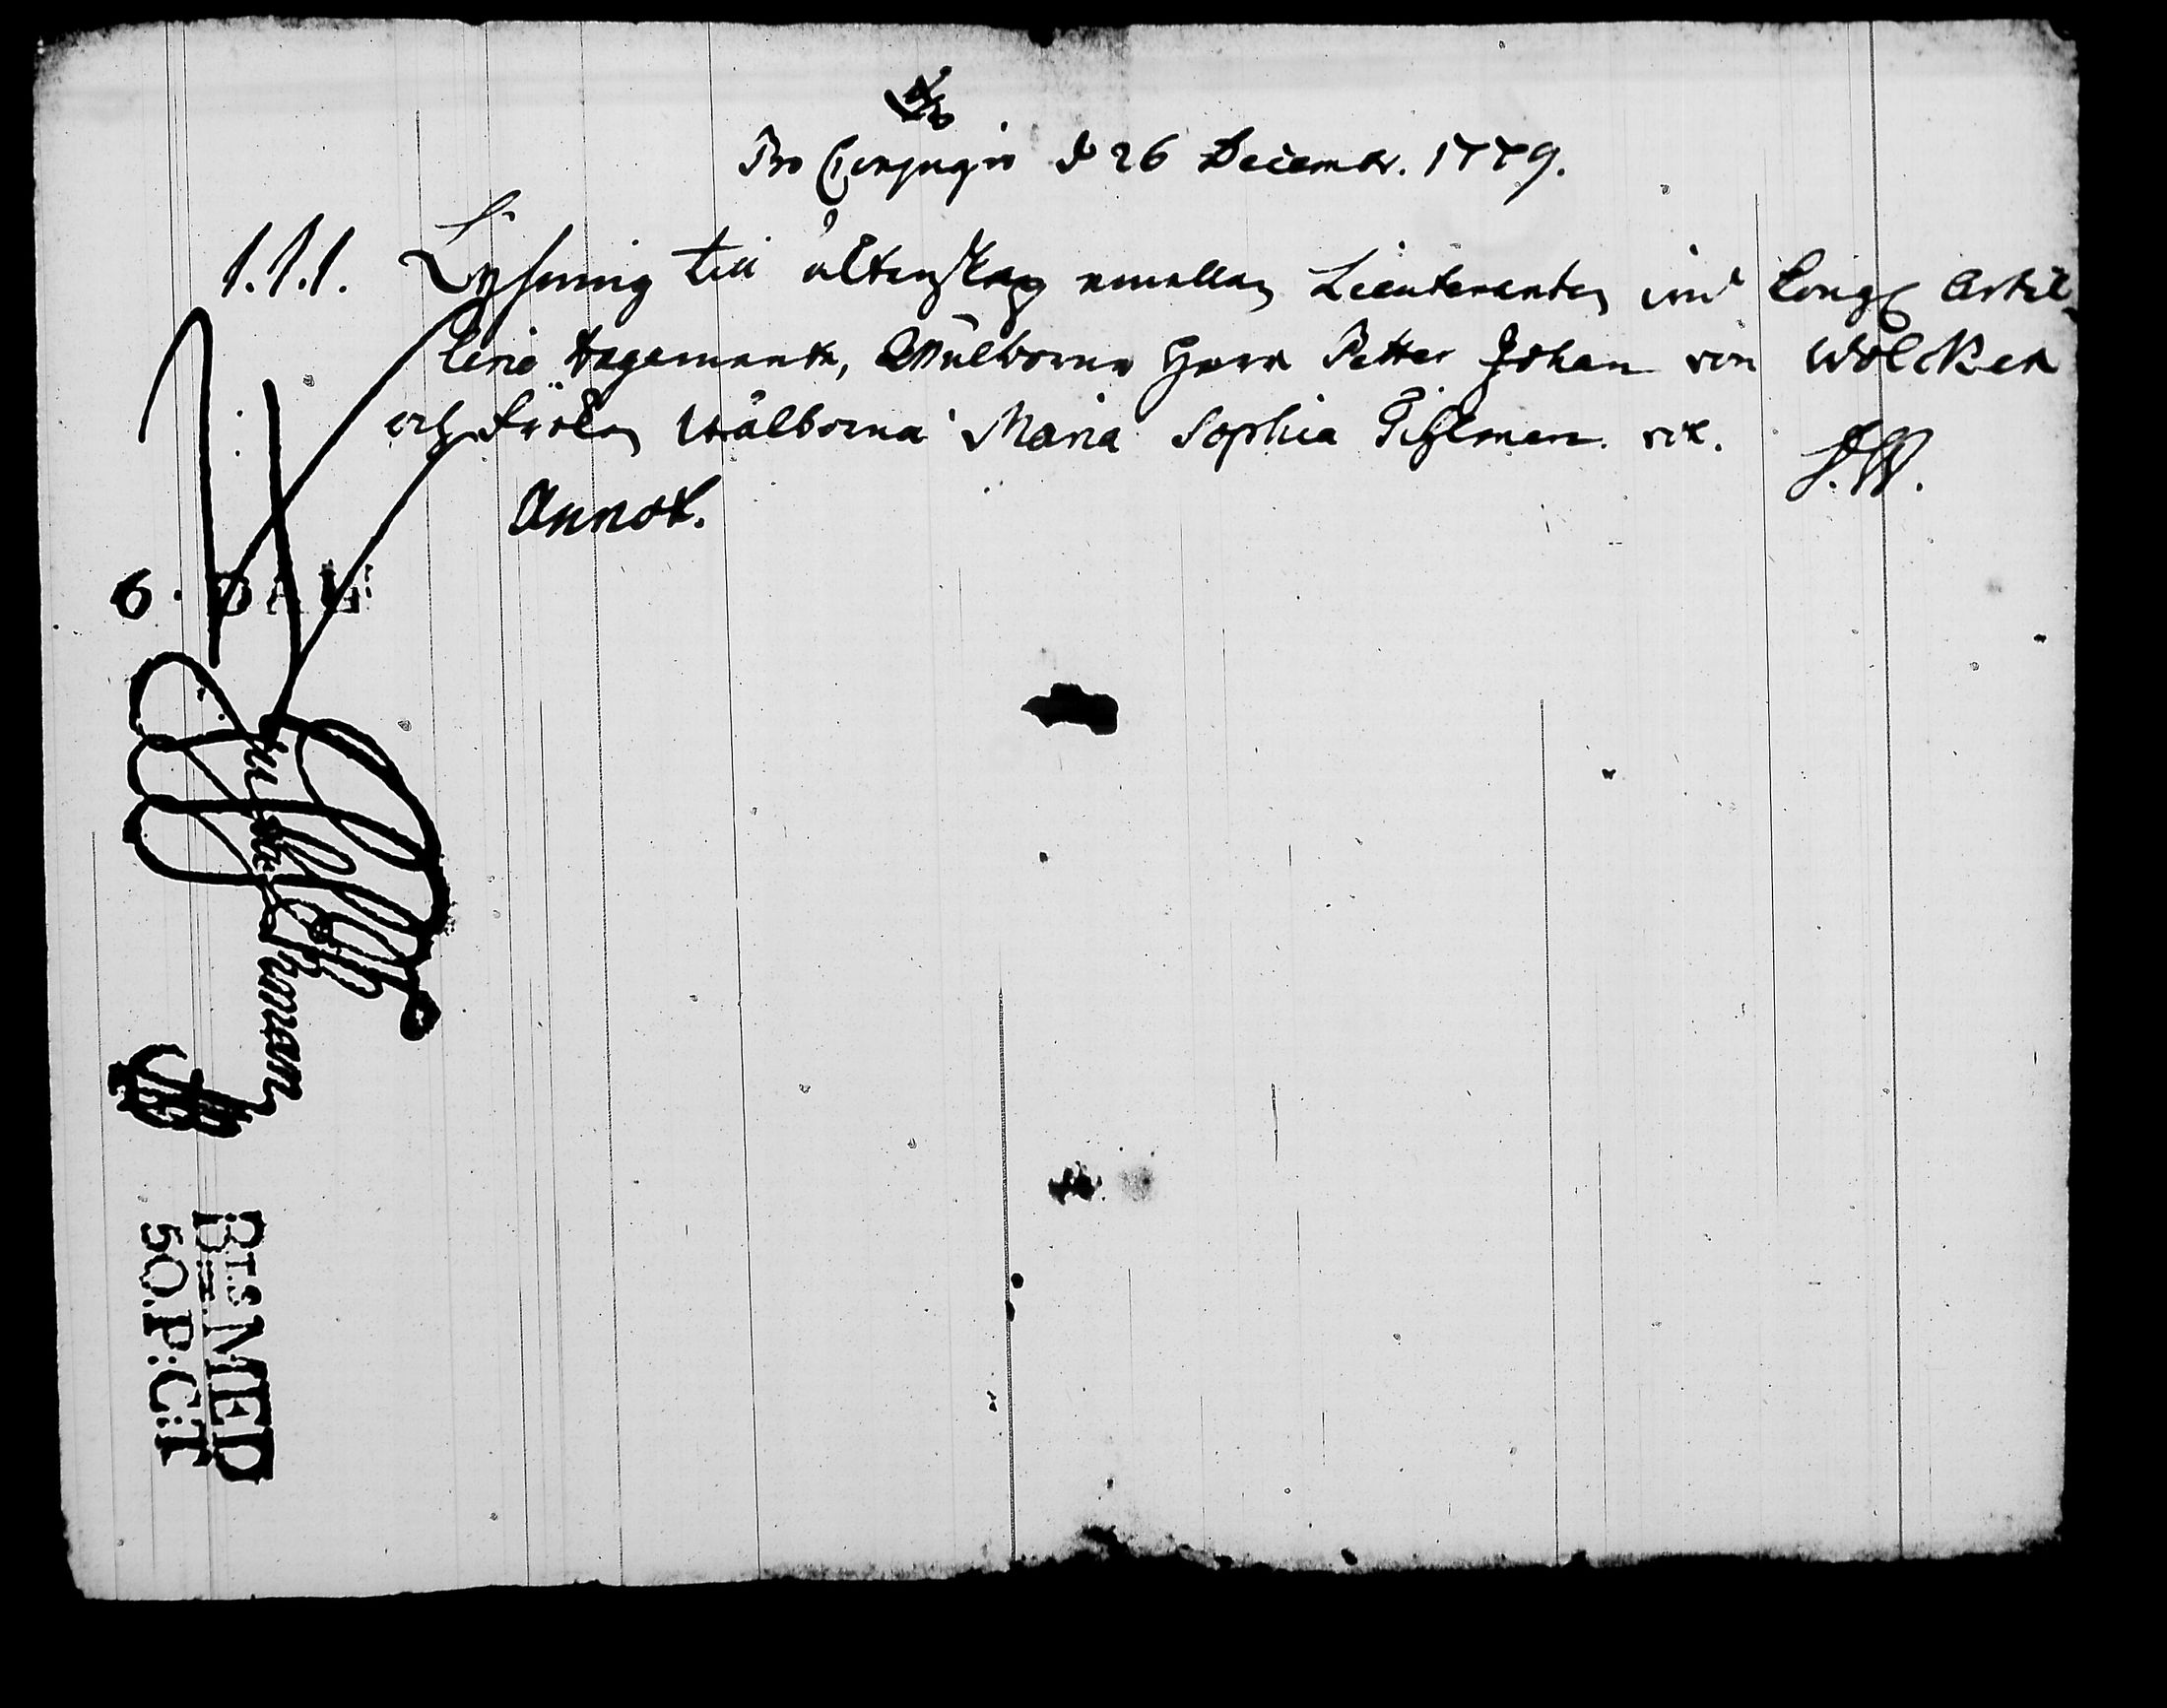 Pro Conjugio d 26 Decemb. 1779.
1.1.1. Lysning till äktenskap emellan Lieutenanten vid Kongl Artil
lerie Regementet, Wälborne Herr Petter Johan von Wölcker
och Fröken Wälborna Maria Sophia Tihlman
S.W.
Annot.
6. DAL:
R:T:S MED
50. P:C:T